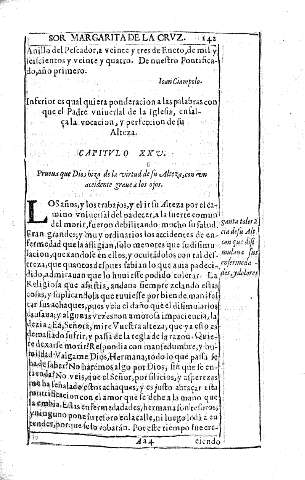 SOR MARGARITA DE LA CRVZ. 142
Anillo del Pescador, a veinte y tres de Enero, de mil y
seiscientos y veinte y quatro. De nuestro Pontifica-
do, año primero.
Ioan Ciampolo.
Inferior es qual quiera ponderacion a las palabras con
que el Padre vniuersal de la Iglesia, ensal-
ça la vocacion, y perfeccion de su
Alteza.
CAPITVLO XXV.
Prueua que Dios hizo de la virtud de su Alteza, con vn
accidente graue a los ojos.
LOS años, y los trabajos, y el ir su Alteza por el ca-
mino vniuersal del padecer, a la suerte comun
del morir, fueron debilitando mucho su salud.
Eran grandes, y muy ordinarios los accidentes de en-
fermedad que la afligian, solo menores que su disimu-
lacion, quexandose en ellos, y ocultãdolos con tal des-
treza, que quando despues sabian lo que auia padeci-
dido, admirauan que lo huuiesse podido tolerar. La
Religiosa que assistia, andaua siempre zelando estas
cosas, y suplicandola que tuuiesse por bien de manifes-
tar sus achaques, pues veia el daño que el disimularlos
causaua; y algunas vezes con amorosa impaciencia, la
dezia: Ea, Señora, mire Vuestra alteza, que ya esso es
demasiado sufrir, y passa de la regla de la razon. Quie-
re dexarse morir? Respondia con mansedumbre, y hu-
mildad: Valgame Dios, Hermana, todo lo que passa se
ha de saber? No haremos algo por Dios, sin que se en-
tienda? No veis, que el Señor, por silicios, y asperezas
me ha señalado estos achaques, y es justo abraçar esta
mortificacion con el amor que se deue a la mano que
la embia. Estas enfermedades, hermana son tesoros,
y ninguno pone su tesoro en la calle, ni luego lo dà a en-
tender, porque se lo robaràn. Por este tiempo fue cre-
Aa4 ciendo
Santa toler&#227;
cia de su Al-
con que disi
mulaua sus
enfermeda-
des, y dolores